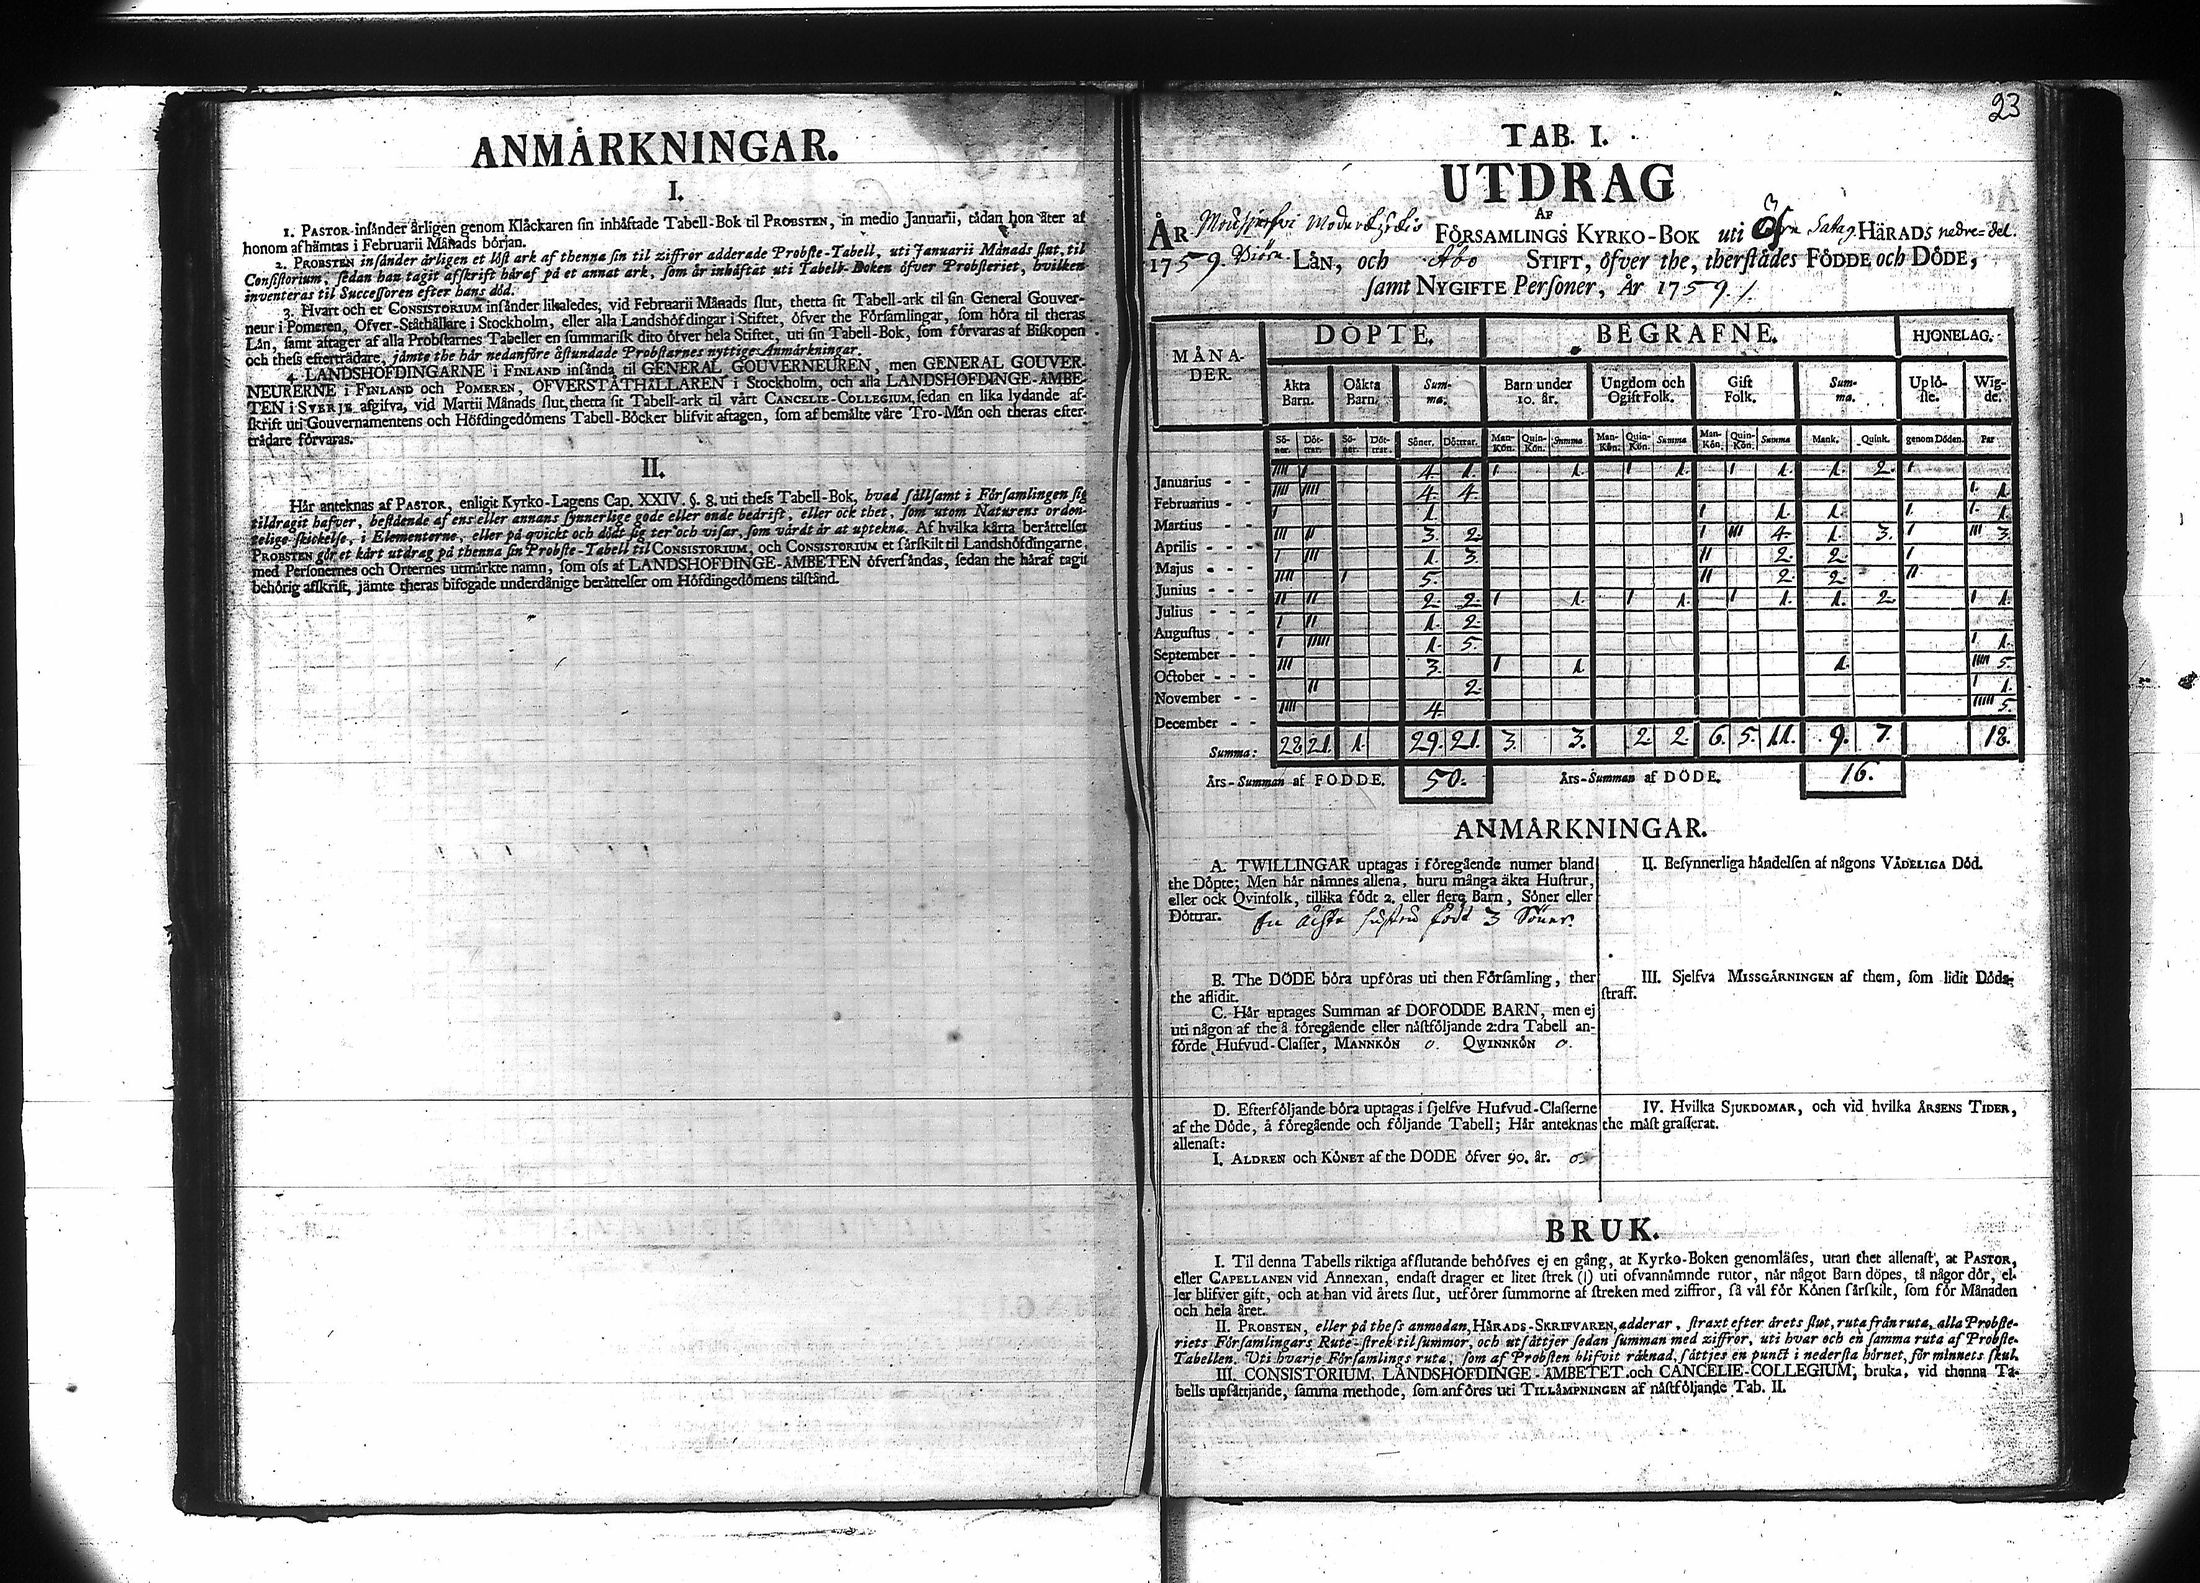 ANMÅRKNINGAR.
I.
1. PASTOR insånder årligen genom Klåckaren sin inhåftade Tabell-Bok til PROBSTEN, in medio Januarii, tådan hon åter af
honom afhämtas i Februarii Månads början.
2. PROBSTEN insånder årligen et löst ark af thenna sin til ziffror adderade Probste-Tabell, uti Januarii Månads slut, til
Consistorium, sedan han tagit afskrift håraf på et annat ark, som är inhåftåt uti Tabell-Boken öfver Probsteriet, hvilken
inventeras til Successoren efter hans död.
3. Hvart och et CONSISTORIUM insånder likaledes, vid Februarii Månads slut, thetta sit Tabell-ark til sin General Gouver-
neur i Pomeren, Ofver-Ståthållare i Stockholm, eller alla Landshöfdingar i Stiftet, öfver the Församlingar, som höra til theras
Lån, samt aftager af alla Probstarnes Tabeller en summarisk dito öfver hela Stiftet, uti sin Tabell-Bok, som förvaras af Biskopen
och thess efterträdare, jämte the här nedanföre åstundade Probstarnes nyttige Anmärkningar.
4. LANDSHOFDINGARNE i FINLAND insånda til GENERAL GOUVERNEUREN, men GENERAL GOUVER-
NEURERNE i FINLAND och POMEREN, OFVERSTÅTHÅLLAREN i Stockholm, och alla LANDSHOFDINGE-AMBE-
TEN i SVERJE afgifva, vid Martii Månads slut, thetta sit Tabell-ark til vårt CANCELIE-COLLEGIUM, sedan en lika lydande af-
skrift uti Gouvernamentens och Höfdingedömens Tabell-Böcker blifvit aftagen, som af bemälte våre Tro-Mån och theras efter-
trådare förvaras.
II.
Hår anteknas af PASTOR, enligit Kyrko-Lagens Cap. XXIV. §. 8. uti thess Tabell-Bok, hvad sållsamt i Församlingen sig
tildragit hafver, bestående af ens eller annans synnerlige gode eller onde bedrift, eller ock thet, som utom Naturens orden-
telige skickelse, i Elementerne, eller på qvickt och dödt sig ter och visar, som vårdt är at uptekna. Af hvilka kårta beråttelser
PROBSTEN gör et kårt utdrag på thenna sin Probste-Tabell til CONSISTORIUM, och CONSISTORIUM et sårskilt til Landshöfdingarne,
med Personernes och Orternes utmårkte namn, som oss af LANDSHOFDINGE-AMBETEN öfversåndas, sedan the håraf tagit
behörig afskrift, jämte theras bifogade underdånige beråttelser om Höfdingedömens tilstånd.
23
TAB. I.
UTDRAG
AF
ÅR FÖRSAMLINGS KYRKO-BOK uti HÄRADS nedre=del
1759. LÅN, och Åbo STIFT, öfver the, therstådes FÖDDE och DÖDE,
samt NYGIFTE Personer, År 1759.
MÅNA-
DER. DÖPTE. BEGRAFNE. HJONELAG.
Äkta Barn. Oåkta Barn. Sum-ma. Barn under 10. år. Ungdom och Ogift Folk. Gift Folk. Sum-ma. Uplö-ste. Wig-de.
Sö-ner. Döt-trar. Sö-ner. Döt-trar. Söner. Döttrar. Man-Kön. Quin-Kön. Summa Man-Kön. Quin-Kön. Summa Man-Kön. Quin-Kön. Summa Mank. Quink. genom Döden. Par
Januarius - - IIII I 4. 1. I 1. I 1. I 1. 1. 2. I
Februarius - - IIII IIII 4. 4. I. 1.
Martius - - I 1. I 1. 1. I I. 1.
Aprilis - - - III II 3. 2. I III 4. 1. 3. I III 3.
Majus - - - I III 1. 3. II 2. 2. I
Junius - - - IIII I 5. II 2. 2. II
Julius - - - II II 2. 2. I 1. I 1. I 1. 1. 2. I 1.
Augustus - - I II 1. 2.
September - - I IIIII 1. 5. I 1.
October - - - III 3. I 1. 1. IIIII 5.
November - - II 2 I 1.
December - - IIII 4. IIIII 5.
Summa: 28. 21. 1. 29. 21. 3. 3. 2. 2. 6. 5. 11. 9. 7. 18.
Års-Summan af FÖDDE. 50. Års-Summan af DÖDE. 16.
ANMÅRKNINGAR.
A. TWILLINGAR uptagas i föregående numer bland
the Döpte; Men hår nåmnes allena, huru många äkta Hustrur,
eller ock Qvinfolk, tillika födt 2. eller flere Barn, Söner eller
Döttrar. En Ächta hustru födt 3 Söner.
B. The DÖDE böra upföras uti then Församling, ther
the aflidit.
C. Hår uptages Summan af DÖFÖDDE BARN, men ej
uti någon af the å föregående eller nåstföljande 2:dra Tabell an-
förde Hufvud-Classer, MANNKÖN 0. QWINNKÖN 0.
D. Efterföljande böra uptagas i sjelfve Hufvud-Classerne
af the Döde, å föregående och följande Tabell; Hår anteknas
allenast:
I. ALDREN och KÖNET af the DÖDE öfver 90. år. 0.
II. Besynnerliga håndelsen af någons VÅDELIGA Död.
III. Sjelfva MISSGÅRNINGEN af them, som lidit Döds-
straff.
IV. Hvilka SJUKDOMAR, och vid hvilka ÅRSENS TIDER,
the måst grasserat.
BRUK.
I. Til denna Tabells riktiga afslutande behöfves ej en gång, at Kyrko-Boken genomläses, utan thet allenast, at PASTOR,
eller CAPELLANEN vid Annexan, endast drager et litet strek (|) uti ofvannåmnde rutor, når något Barn döpes, tå någor dör, el-
ler blifver gift, och at han vid årets slut, utförer summorne af streken med ziffror, så vål för Könen sårskilt, som för Månaden
och hela året.
II. PROBSTEN, eller på thess anmodan, HÅRADS-SKRIFVAREN, adderar, straxt efter årets slut, ruta från ruta, alla Probste-
riets Församlingars Rute-strek til summor, och utsåttjer sedan summan med ziffror, uti hvar och en samma ruta af Probste-
Tabellen. Uti hvarje Församlings ruta, som af Probsten blifvit råknad, såttjes en punct i nedersta hörnet, för minnets skul.
III. CONSISTORIUM, LANDSHÖFDINGE-AMBETET och CANCELIE-COLLEGIUM, bruka, vid thenna Ta-
bells upsåttjande, samma methode, som anföres uti TILLÅMPNINGEN af nåstföljande Tab. II.